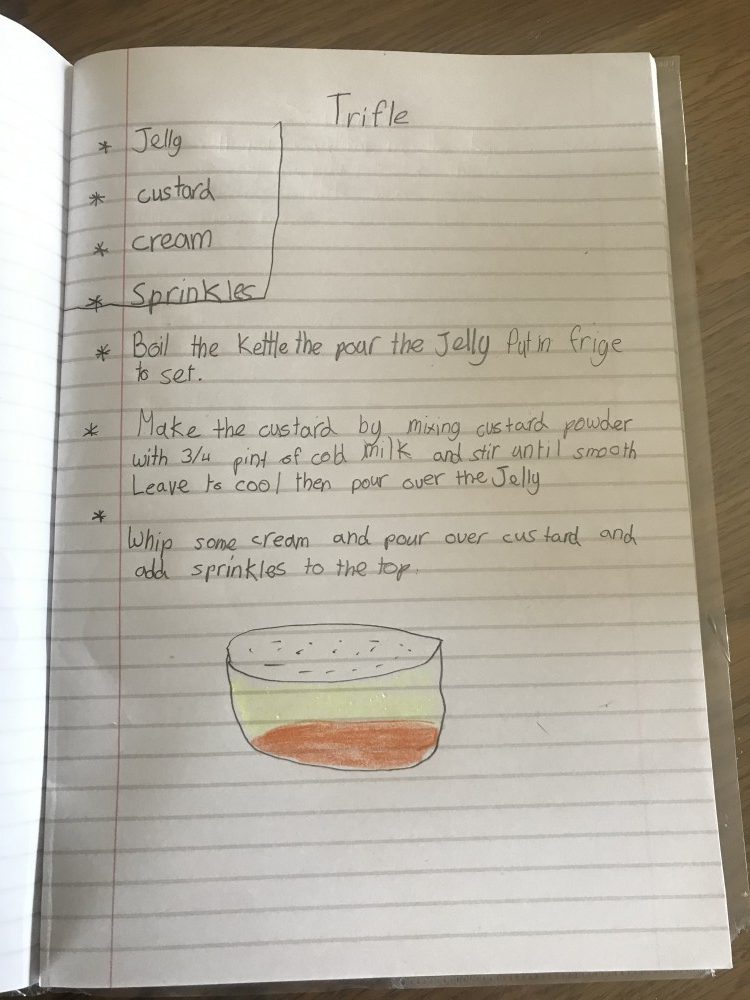 Trifle
* Jelly
* custard
* cream
* Sprinkles
* Boil the Kettle the pour the Jelly Put in frige
to set.
* Make the custard by mixing custard powder
with 3/4 pint of cold milk and stir until smooth
Leave to cool then pour over the Jelly
*
Whip some cream and pour over custard and
add sprinkles to the top.